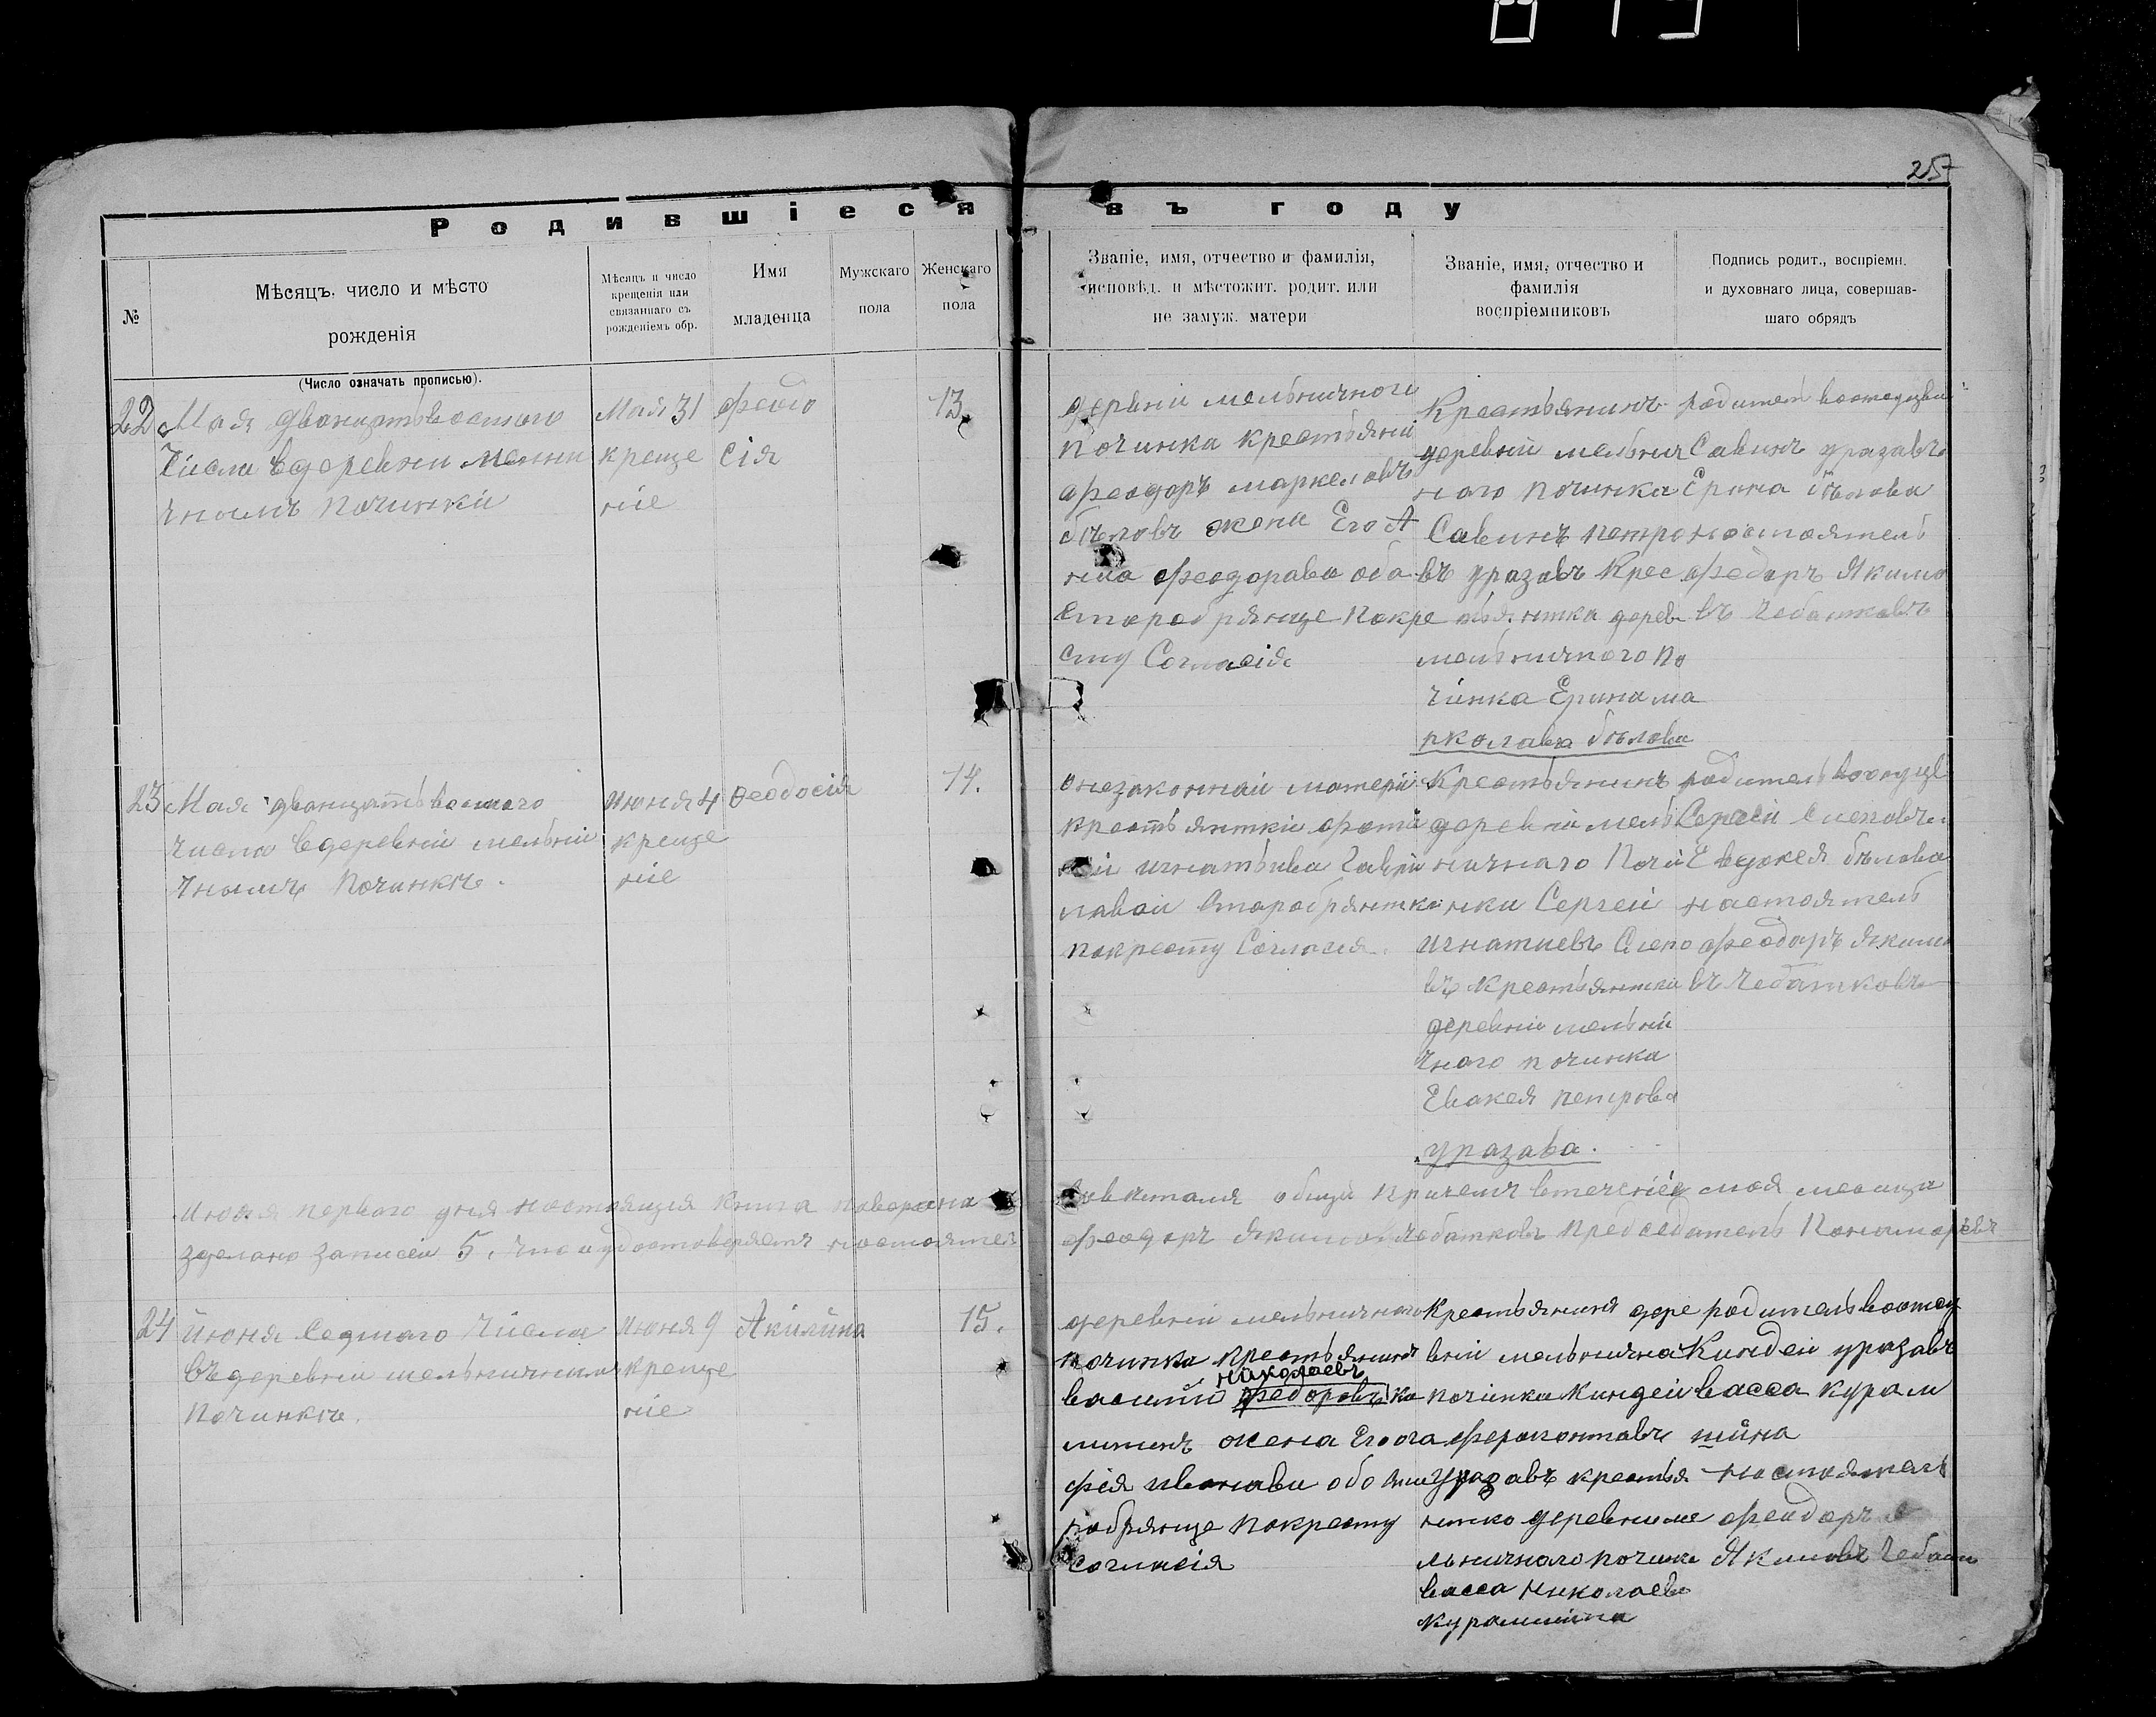 257
Родившіеся въ году
№
Мѣсяцъ, число и мѣсто
рожденія
(Число означать прописью).
Мѣсяцъ и число
крещенія или
связаннаго съ
рожденіемъ обр.
Имя
младенца
Мужскаго
пола
Женскаго
пола
Званіе, имя, отчество и фамилія,
исповѣд. и мѣстожит. родит. или
не замуж. матери
Званіе, имя, отчество и
фамилія
воспріемниковъ
Подпись родит., воспріемн.
и духовнаго лица, совершав-
шаго обрядъ
22 Мая двонцатьвосмого
числа вдеревни мельни
чномъ починки
Мая 31
креще
ніе
Феодо
сія
13.
деревни мельничного
починка крестьяни
Феодоръ маркеловъ
бѣловъ жена Его А
нна Феодорава оба
старобрянце покре
сту Согласія
Крестьянинъ
деревни мельнич
ного починка
Савинъ петро
въ уразавъ Крес
тьянтка дерев
мельничного по
чинка Ерина ма
ркелава бѣлова
родитель
Савинъ уразавъ
Ерина бѣлова
ностоятель
Федоръ Якимо
въ Чебатковъ
23 Мая двонцатьвосмого
числа вдеревніи мельни
чномъ починкѣ.
июня 4
креще
ніе
Феодосія
14.
онезаконнаи матери
крестьянткіи
игнатьива
старобрянтки
покресту Согласия.
Крестьянинъ
деревни мель
ничнаго почи
нки Сергей
игнатиевъ Слепо
въ крестьянтка
деревни мельни
чного починка
Евдкея петрова
уразава.
родитель
Сергеи Слеповъ
Евдокея бѣлова
настоятель
Феодоръ якимо
въ Чебатковъ
июня первого дня ностоящия книга поверена
зделано записеи 5. что и удостоверяетъ ностоятел
общи причемъ втечение мая месяца
Феодоръ якимовъ Чебатковъ председатель Пономоревъ
24 июня седмаго числа
въдеревни мельничномъ
починкѣ.
июня 9
креще
ніе
Акилина
15.
деревни мельничного
починка крестьянинъ
николаевъ
василий федоровъ ку
жена Его ога
фия иванави обо ста
робрянце покресту
согласія
Крестьянинъ дере
вни мельнична
починки Киндеи
ферапонтавъ
Уразавъ крестья
нтко деревни ме
льничного починк
васса николаевн
курамшина
родитель
Киндеи уразавъ
васса курам
шина
ностоятель
феодоръ
Якимовъ Чебатк